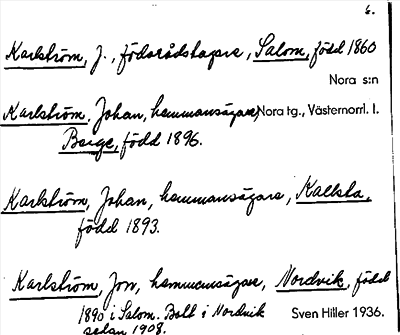 6.
Karlström, J., födorådstagare, Salom, född 1860
Nora s:n
Karlström, Johan, hemmansägare, Nora tg., Västernorrl. l.
Berge, född 1896.
Karlström, Johan, hemmansägare, Kallsta,
född 1893.
Karlström, Jon, hemmansägare, Nordvik, född
1890 i Salom. Bott i Nordvik Sven Hiller 1936.
sedan 1908.